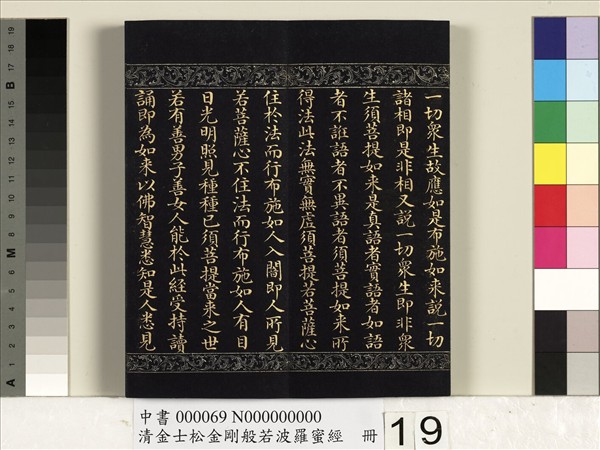 一切衆生故應如是布施如来說一切
諸相即是非相又說一切衆生即非衆
生須菩提如来是真語者實語者如語
者不誑語者不異語者須菩提如来所
得法此法無實無虛須菩提若菩薩心
住於法而行布施如人入闇即人所見
若菩薩心不住法而行布施如人有目
日光明照見種種色須菩提當来之世
若有善男子善女人能於此經受持讀
誦即為如来以佛智慧悉知是人悉見
中書 000069 N000000000
清金士松金剛般若波羅蜜經 冊 19
A 1 2 3 4 5 6 M 8 9 10 11 12 13 14 15 B 17 18 19